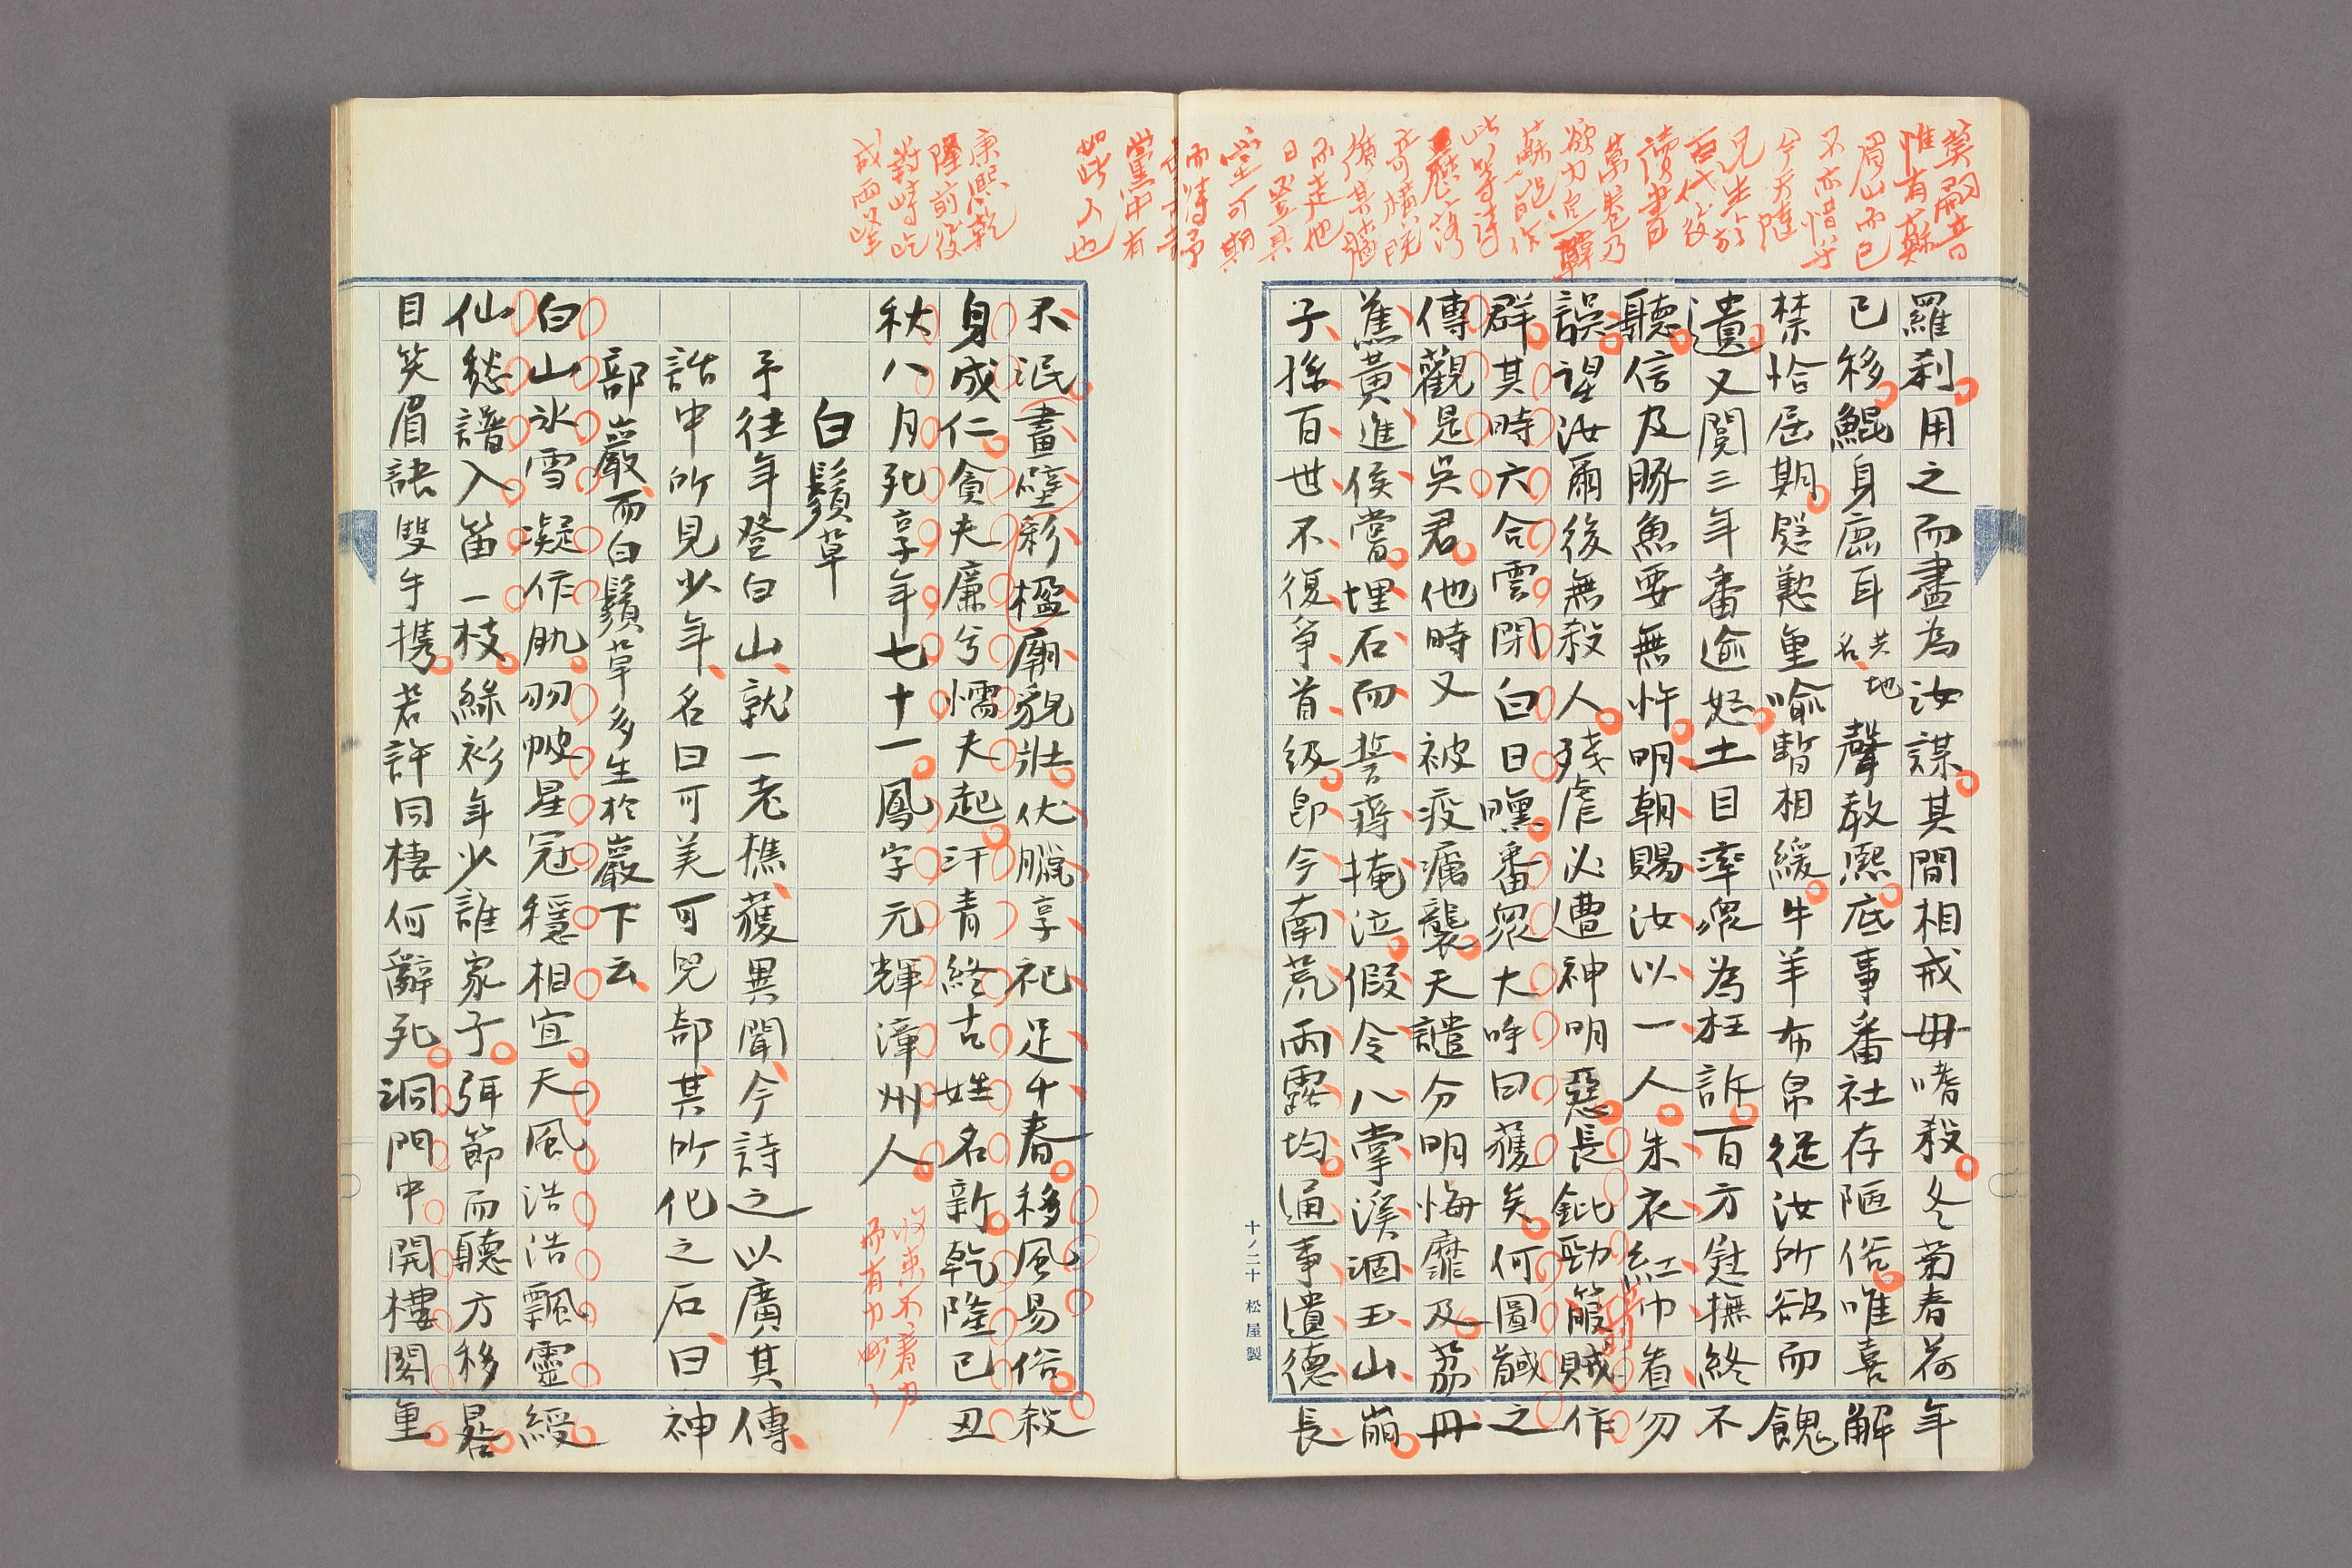 羅刹用之而盡為汝謀其間相戒毋嗜殺冬菊春荷年
已移鯤身鹿耳共地名聲教熙底事番社存陋俗唯喜解
禁恰屆期慇懃重喻暫相緩牛羊布帛從汝所欲而餽
遺又閱三年番逾怒土目率眾為枉訴百方慰撫終不
聽信及豚魚要無忤明朝賜汝以一人朱衣紅巾看勿
誤望汝爾後無殺人殘虐必遭神明惡長鈚勁箙賊作
群其時六合雲閉白日曛番眾大呼曰獲矣何圖馘之
傳觀是吳君他時又被疫癘襲天譴分明悔靡及荔丹
蕉黃進侯嘗埋石而誓齊掩泣假令八掌溪涸玉山崩
子孫百世不復爭首級即今南荒雨露均通事遺德長
不泯畫壁彩楹廟貌壯伏臘享祀足千春移風易俗殺
身成仁貪夫廉兮懦夫起汗青終古姓名新乾隆已丑
秋八月死享年七十一鳳字元輝漳州人
白鬚草
予往年登白山就一老樵獲異聞今詩之以廣其傳
詩中所見少年名曰可美可兒部其所化之石曰神
部巖而白鬚草多生於巖下云
白山氷雪凝作肌羽帔星冠穩相宜天風浩浩飄靈綬
仙愁譜入笛一枝綠衫年少誰家子弭節而聽方移晷
目笑眉語雙手携若許同棲何辭死洞門中開樓閣重
莫嗣昔
惟有蘇
眉山而已
不亦惜乎
今天陡
兄生於
百代後
讀書
萬卷乃
欲力追韓
蘇能作
此等詩
而走他
日竪其
堂可期
而待予
黨中有
如此人也
康熙乾
隆前後
對峙屹
成兩峰
收束不着力
而有力妙々
十ノ二十 松屋製